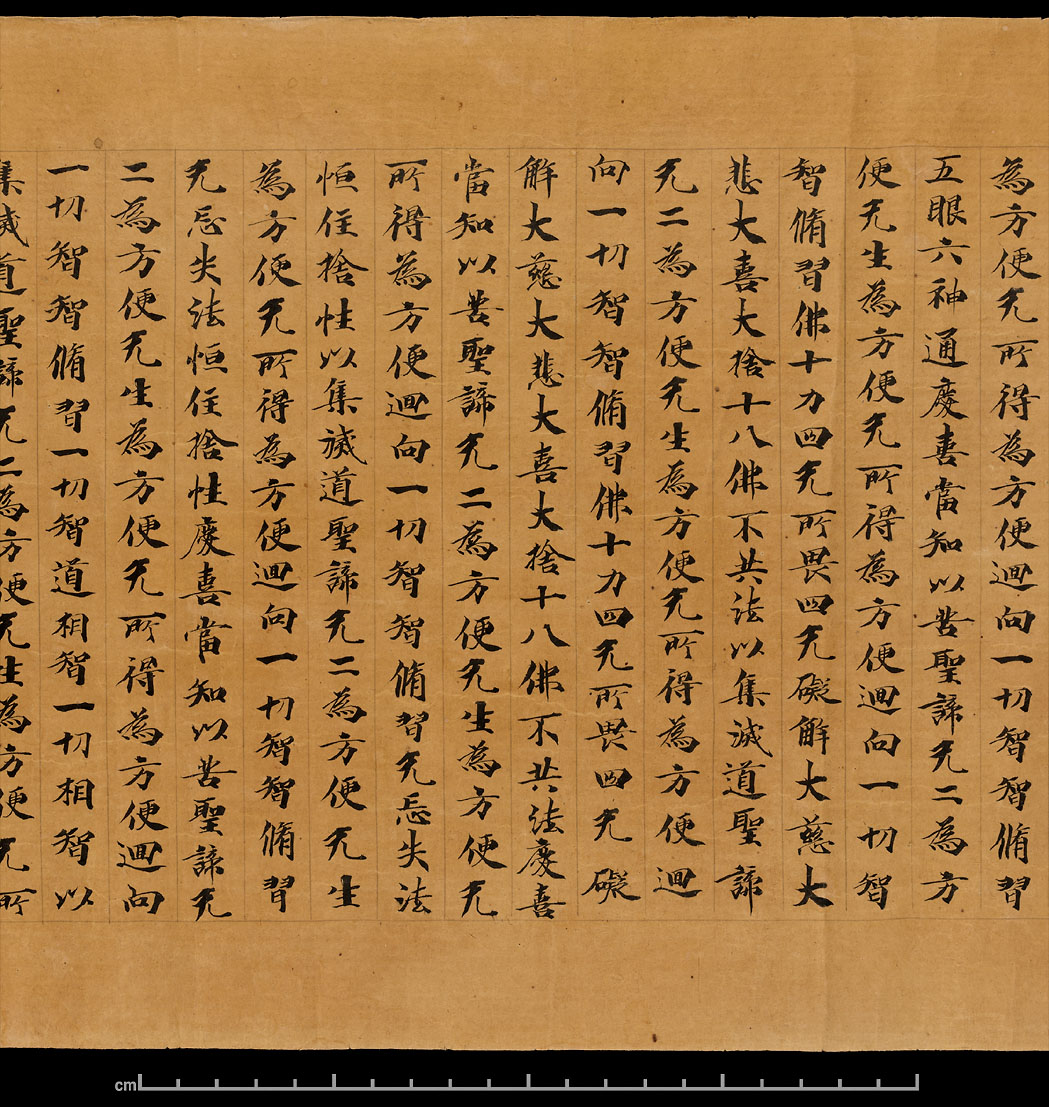 為方便无所得為方便迴向一切智智脩習
五眼六神通慶喜當知以苦聖諦无二為方
便无生為方便无所得為方便迴向一切智
智脩習佛十力四无所畏四无礙解大慈大
悲大喜大捨十八佛不共法以集滅道聖諦
无二為方便无生為方便无所得為方便迴
向一切智智脩習佛十力四无所畏四无礙
解大慈大悲大喜大捨十八佛不共法慶喜
當知以苦聖諦无二為方便无生為方便无
所得為方便迴向一切智智脩習无忘失法
恒住捨性以集滅道聖諦无二為方便无生
為方便无所得為方便迴向一切智智脩習
无忘失法恒住捨性慶喜當知以苦聖諦无
二為方便无生為方便无所得為方便迴向
一切智智脩習一切智道相智一切相智以
集滅道聖諦无二為方便无生為方便无所
cm